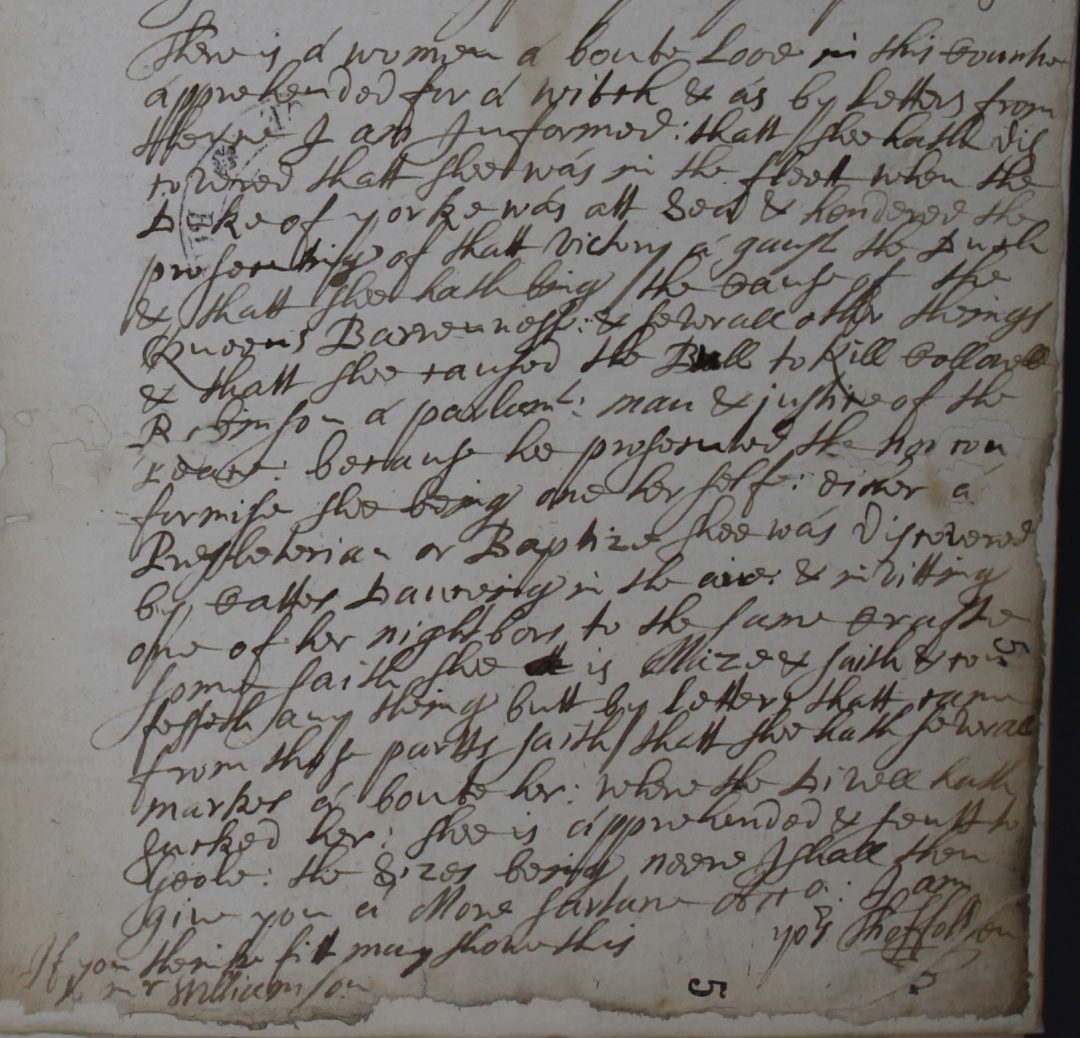 There is a women a boute Looe in this Countre
apprehended for a witch & as by Letters from
thence I am Informed: thatt shee hath dis
covered thatt shee was in the fleett when the
Duke of yorke was att Sea & hendered the
prosecuting of thatt victory a gaust the Duch
& thatt shee hath bing the cause of the
Queens Barrenness: & severall other things
& thatt shee caused the Bull to Kill Collonell
Robinson a parlamt: man & justice of the
Peace: because hee prosecuted the non con
formise shee being one her self: eicher a
Presbleterian or Baptize shee was discovered
by Cattes Dauncing in the aire: & invitting
one of her nightbors to the same crafte
some saith shee is Maze & saith & con
fesseth any thing butt by letters thatt came
from those partts saith thatt shee hath severall
markes a boute her: where the Divell hath
sucked her: shee is apprehended & sentt to
Geole: the Sizes being neere I shall then
give you a More sartane I am
If you thinke fitt may show this yor
to mr Williamson
5
5